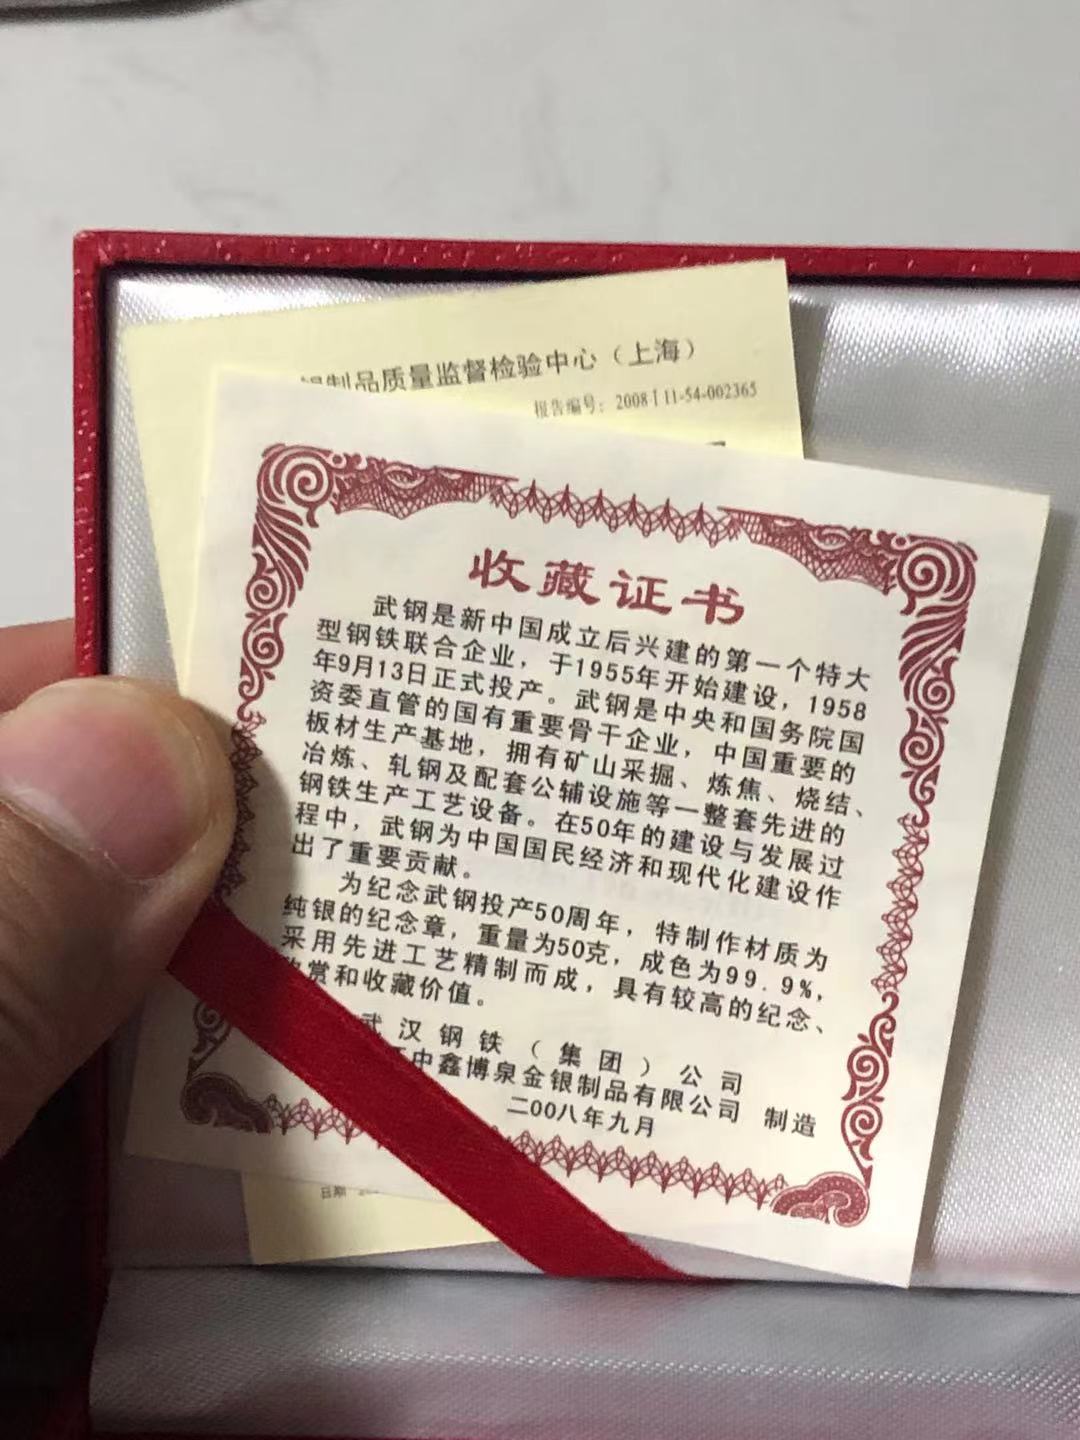 制品质量监督检验中心（上海）
报告编号：2008111-54-002365
收藏证书
武钢是新中国成立后兴建的第一个特大
型钢铁联合企业，于1955年开始建设，1958
年9月13日正式投产。武钢是中央和国务院国
资委直管的国有重要骨干企业，中国重要的
板材生产基地，拥有矿山采掘、炼焦、烧结、
冶炼、轧钢及配套公辅设施等一整套先进的
钢铁生产工艺设备。在50年的建设与发展过
程中，武钢为中国国民经济和现代化建设作
出了重要贡献。
为纪念武钢投产50周年，特制作材质为
纯银的纪念章，重量为50克，成色为99.9%，
采用先进工艺精制而成，具有较高的纪念、
赏和收藏价值。
武汉钢铁（集团）公司
中鑫博泉金银制品有限公司 制造
二00八年九月
日期